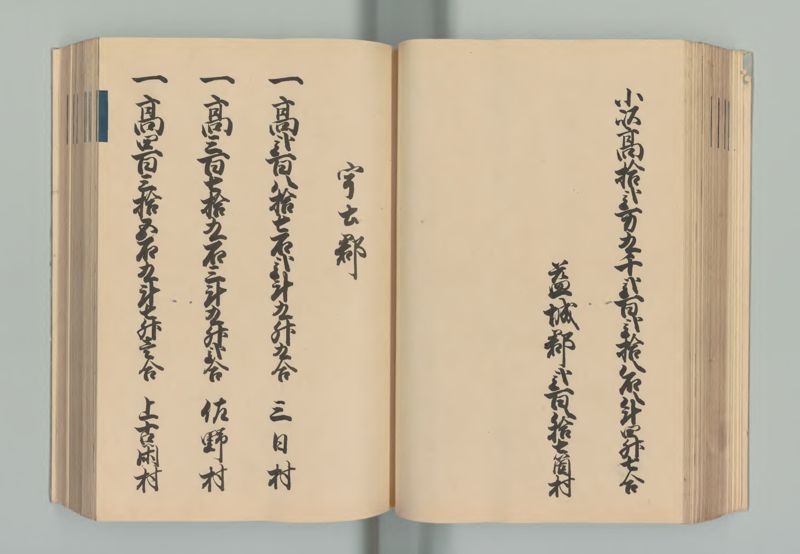 小以高拾弐万九千弐百弐拾八石八斗四升七合
益城郡弐百八拾七箇村
宇土郡
一高弐百八拾七石弐斗九升九合 三日村
一高三百七拾九石三斗九升弐合 佐野村
一高四百三拾五石九斗七升壱合 上古閑村